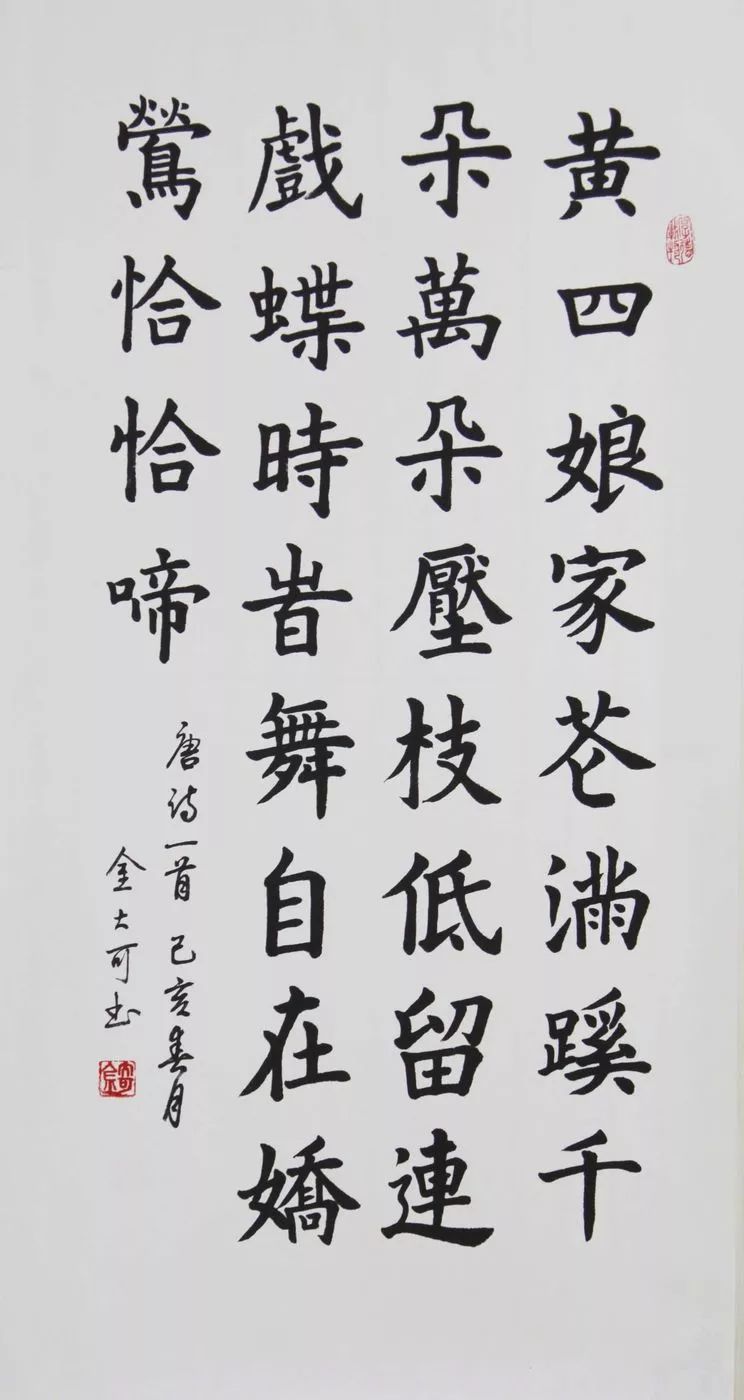 黄四娘家芲滿蹊千
朵萬朵壓枝低留連
戲蝶時旹舞自在嬌
鶯恰恰啼
唐诗一首 己亥春月
金大可书